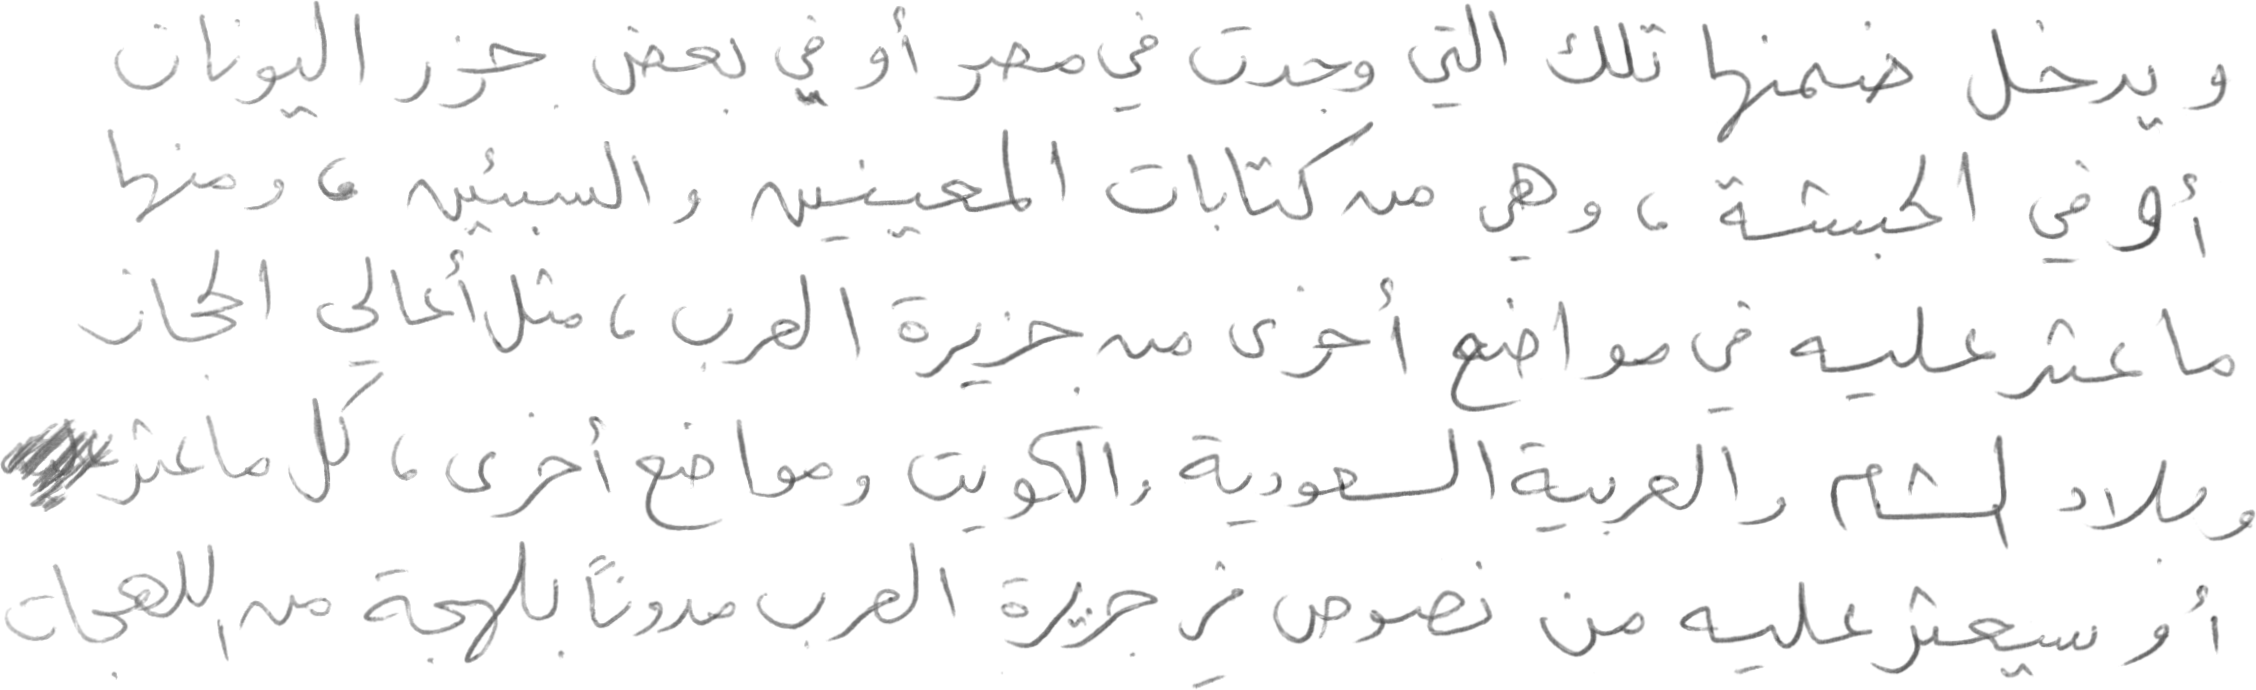 ويدخل ضمنها تلك التي وجدت في مصر أو في بعض جزر اليونان
أو في الحبشة، وهي من كتابات المعينيين والسبئيين، ومنها
ما عثر عليه في مواضع أخرى من جزيرة العرب، مثل أعالي الحجاز
وبلاد الشام والعربية السعودية والكويت ومواضع أخرى، كل ما عثر
أو سيعثر عليه من نصوص في جزيرة العرب مدونًا بلهجة من اللهجات